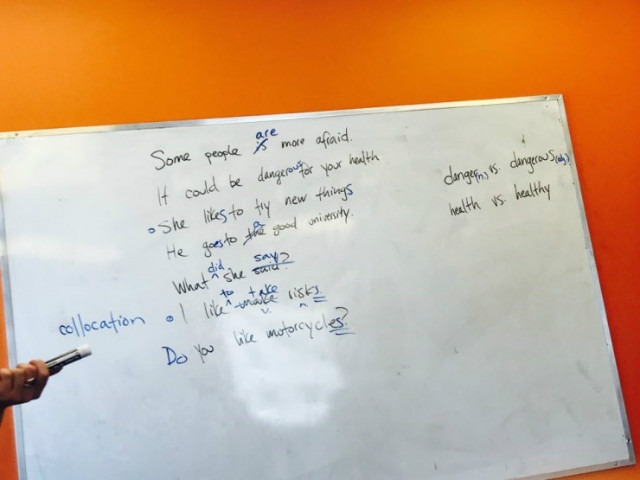 Some people is are more afraid.
It could be dangerous for your health
She likes to try new things
He goes to the a good university.
What did she said? say?
collocation I like to make take risks.
Do you like motorcycles?
danger(n) vs. dangerous(adj)
health vs. healthy